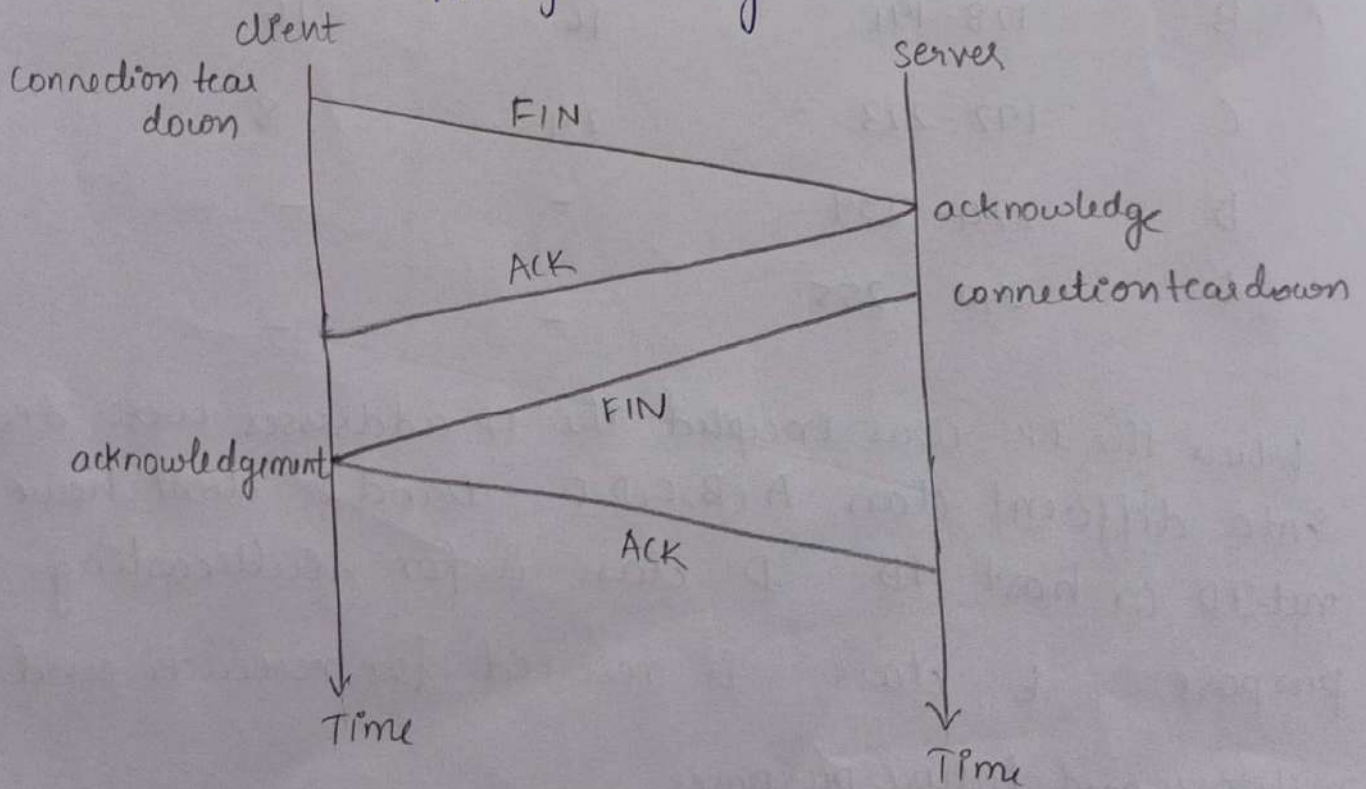 client
server
connection tear
down
FIN
acknowledge
ACK
connection tear down
FIN
acknowledgement
ACK
Time
Time